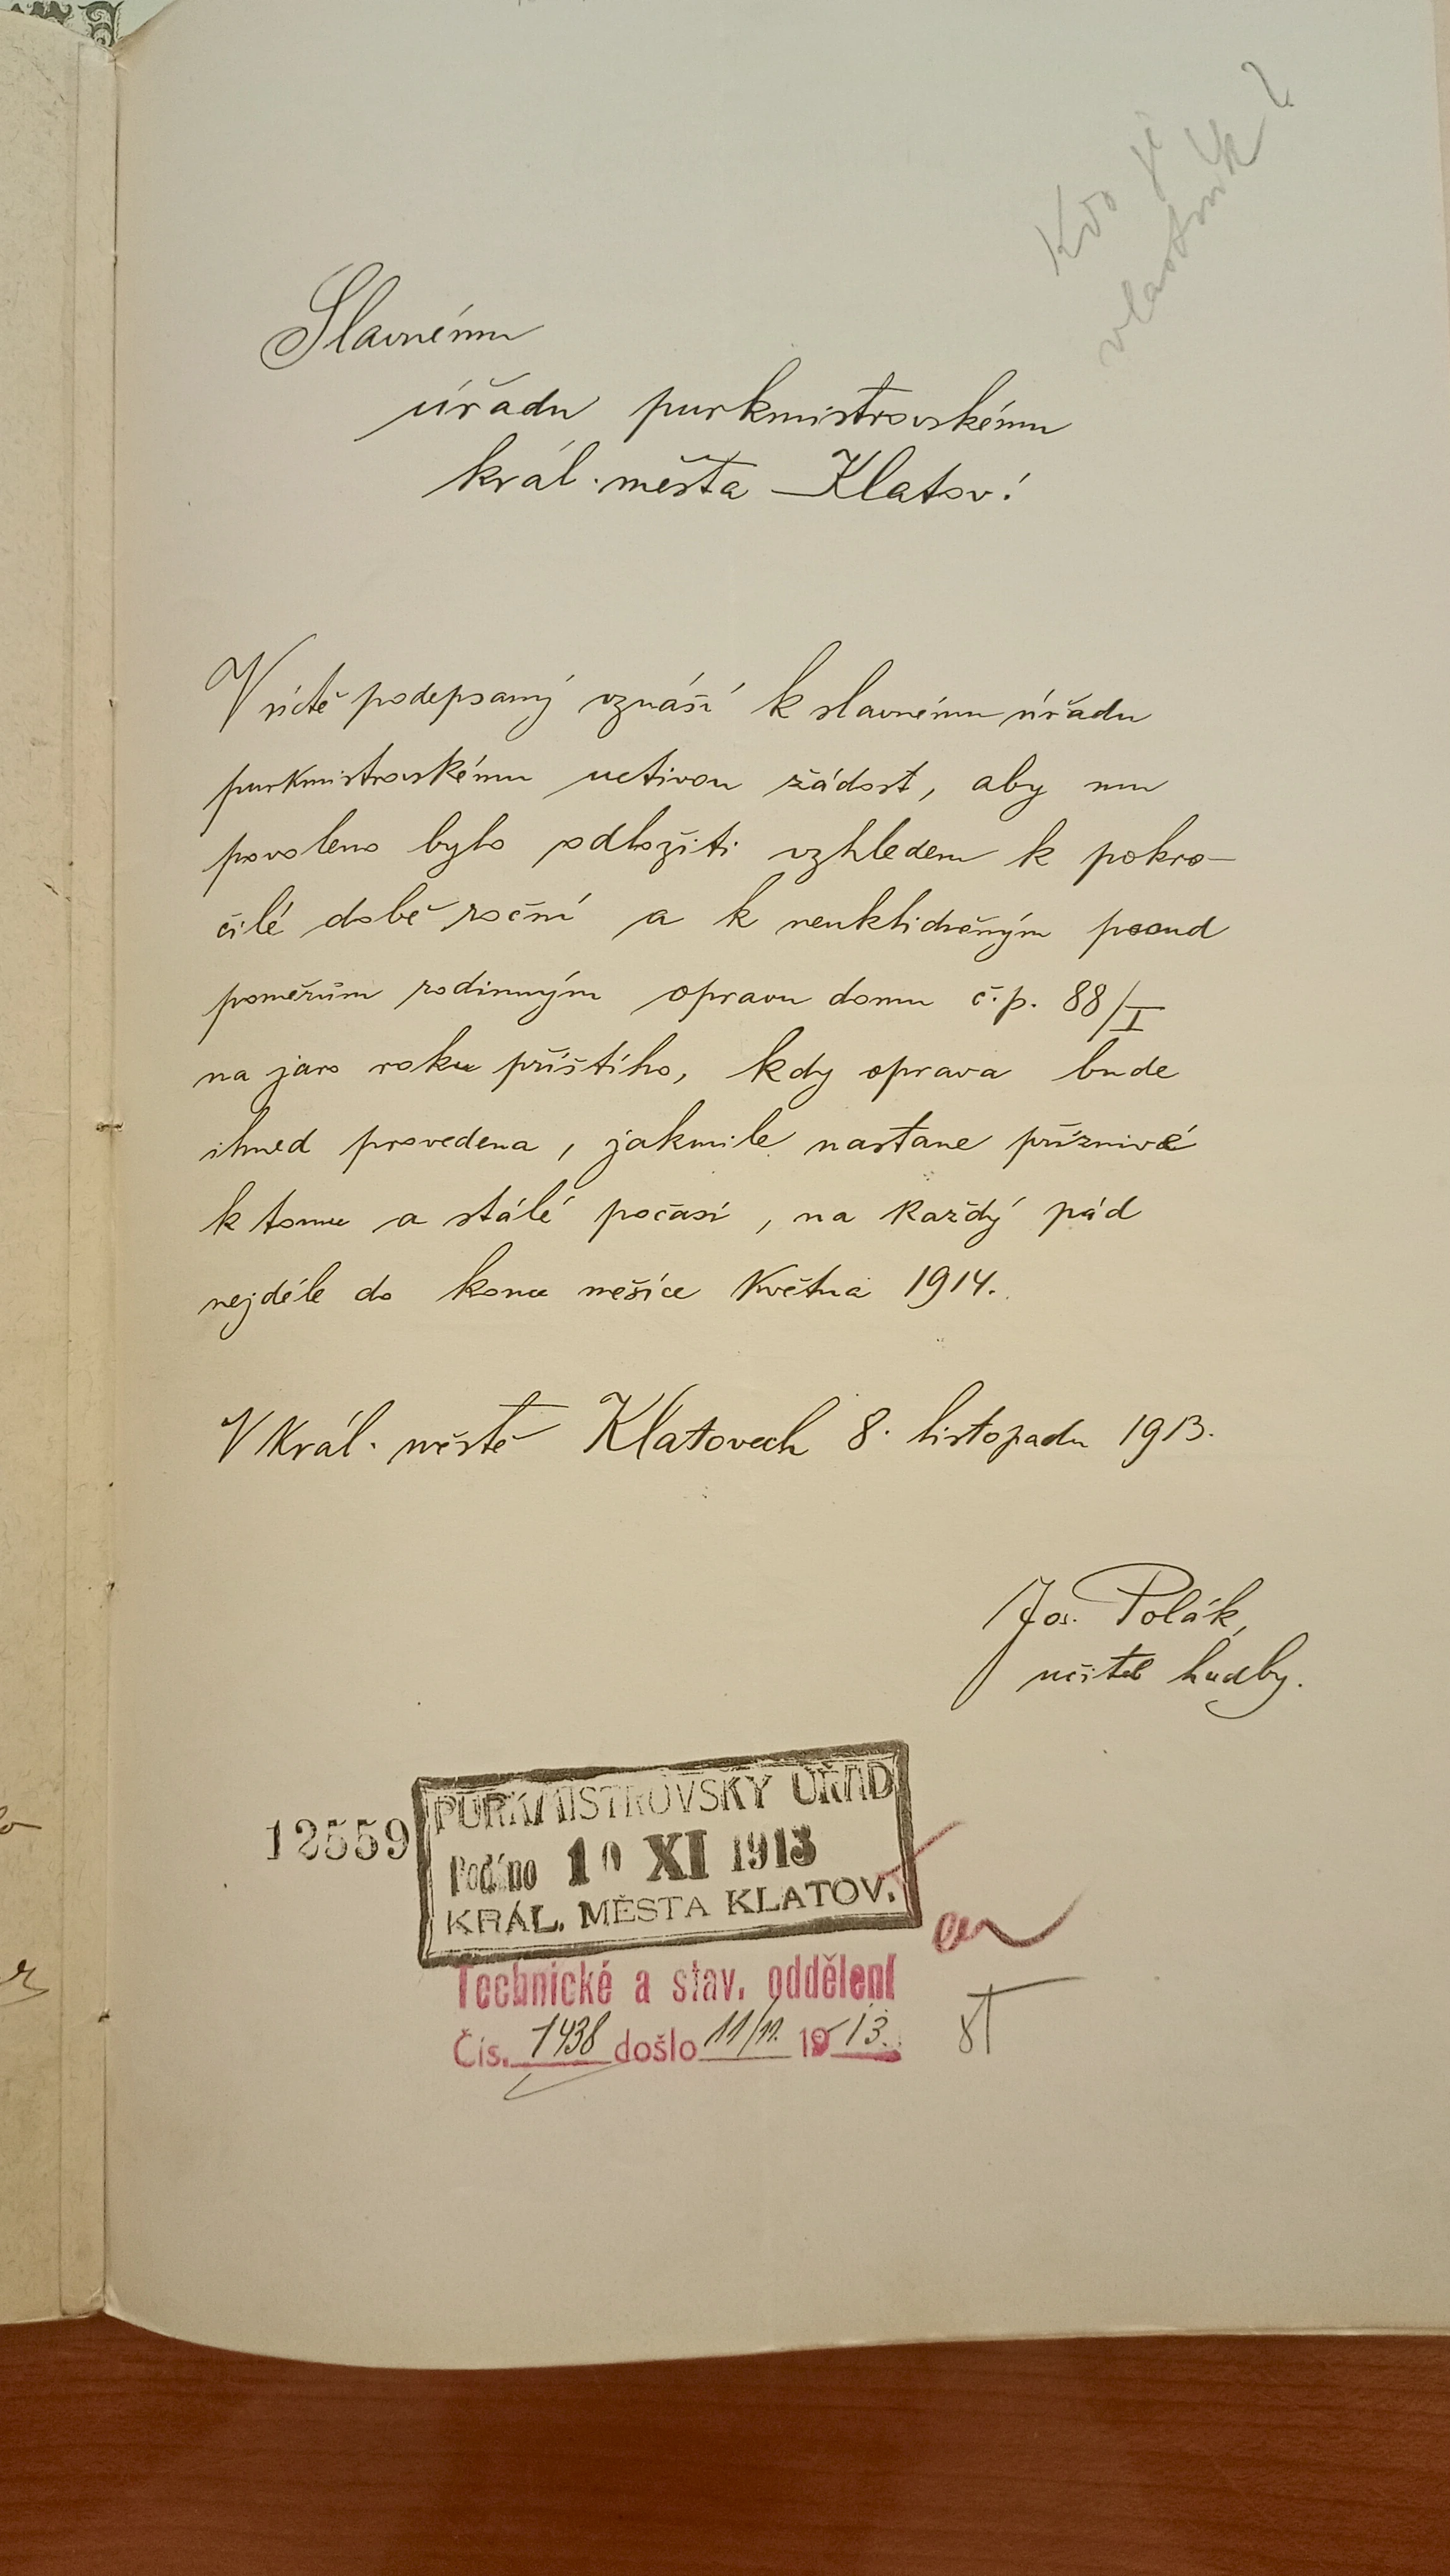 Kdo je
vlastník?
Slavnému
úřadu purkmistrovskému
král. města Klatov!
V úctě podepsaný vznáší k slavnému úřadu
purkmistrovskému uctivou žádost, aby mu
povoleno bylo odložiti vzhledem k pokro-
čilé době roční a k neuklidněným posud
poměrům rodinným opravu domu č.p. 88/I
na jaro roku příštího, kdy oprava bude
ihned provedena, jakmile nastane příznivé
k tomu a stálé počasí, na každý pád
nejdéle do konce měsíce května 1914.
V král. městě Klatovech 8. listopadu 1913.
Jos. Polák,
učitel hudby.
PURKMISTROVSKÝ ÚŘAD
12559 Podáno 10 XI 1913
KRÁL. MĚSTA KLATOV.
Technické a stav. oddělení
Čís. 1438 došlo 11/11. 1913.